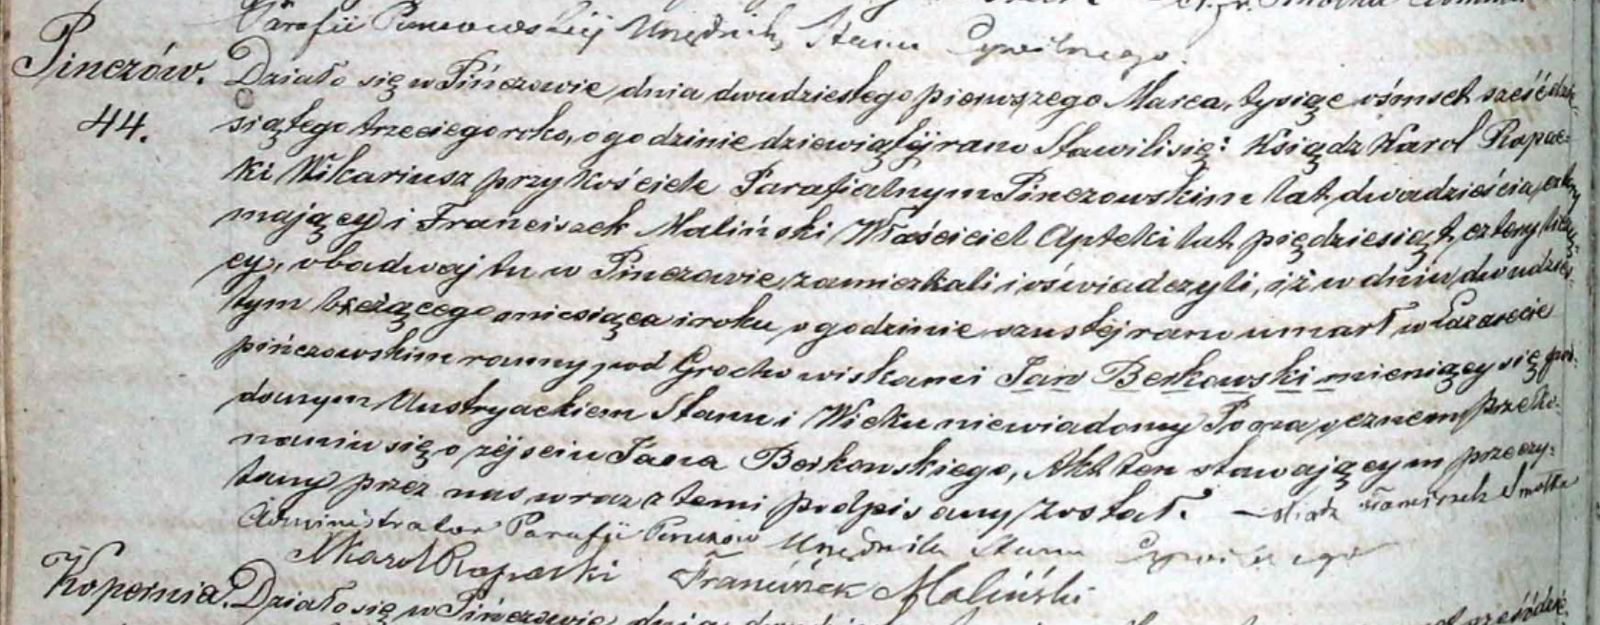 Parafii Pinczowskiéj Urzędnik Stanu Cywilnego.
Pinczów.
44.
Działo się w Pińczowie dnia dwudziestego pierwszego Marca, tysiąc ośmset sześćdzie-
siątego trzeciego roku, o godzinie dziewiątéj rano Stawili się: Ksiądz Karol Rapac-
ki Wikariusz przy Kościele Parafialnym Pinczowskim lat dwadzieścia cztery
mający i Franciszek Maliński Właściciel Apteki lat pięćdziesiąt cztery liczą-
cy, obadwaj tu w Pinczowie zamieszkali i oświadczyli, iż w dniu dwudzies-
tym bieżącego miesiąca i roku, o godzinie szustéj rano umarł w Lazarecie
pińczowskim ranny pod Grochowiskami Jan Berkowski mieniący się pod-
danym Austryackiem Stanu i Wieku niewiadomy Po naocznem przeko-
naniu się o zejściu Jana Berkowskiego, Akt ten stawającym przeczy-
tany przez nas wraz z temi podpisany został. Xiądz Franciszek Smolka
Administrator Parafii Pinczów Urzędnik Stanu Cywilnego
X Karol Rapacki Franciszek Maliński
Kopernia. Działo się w Pińczowie dnia